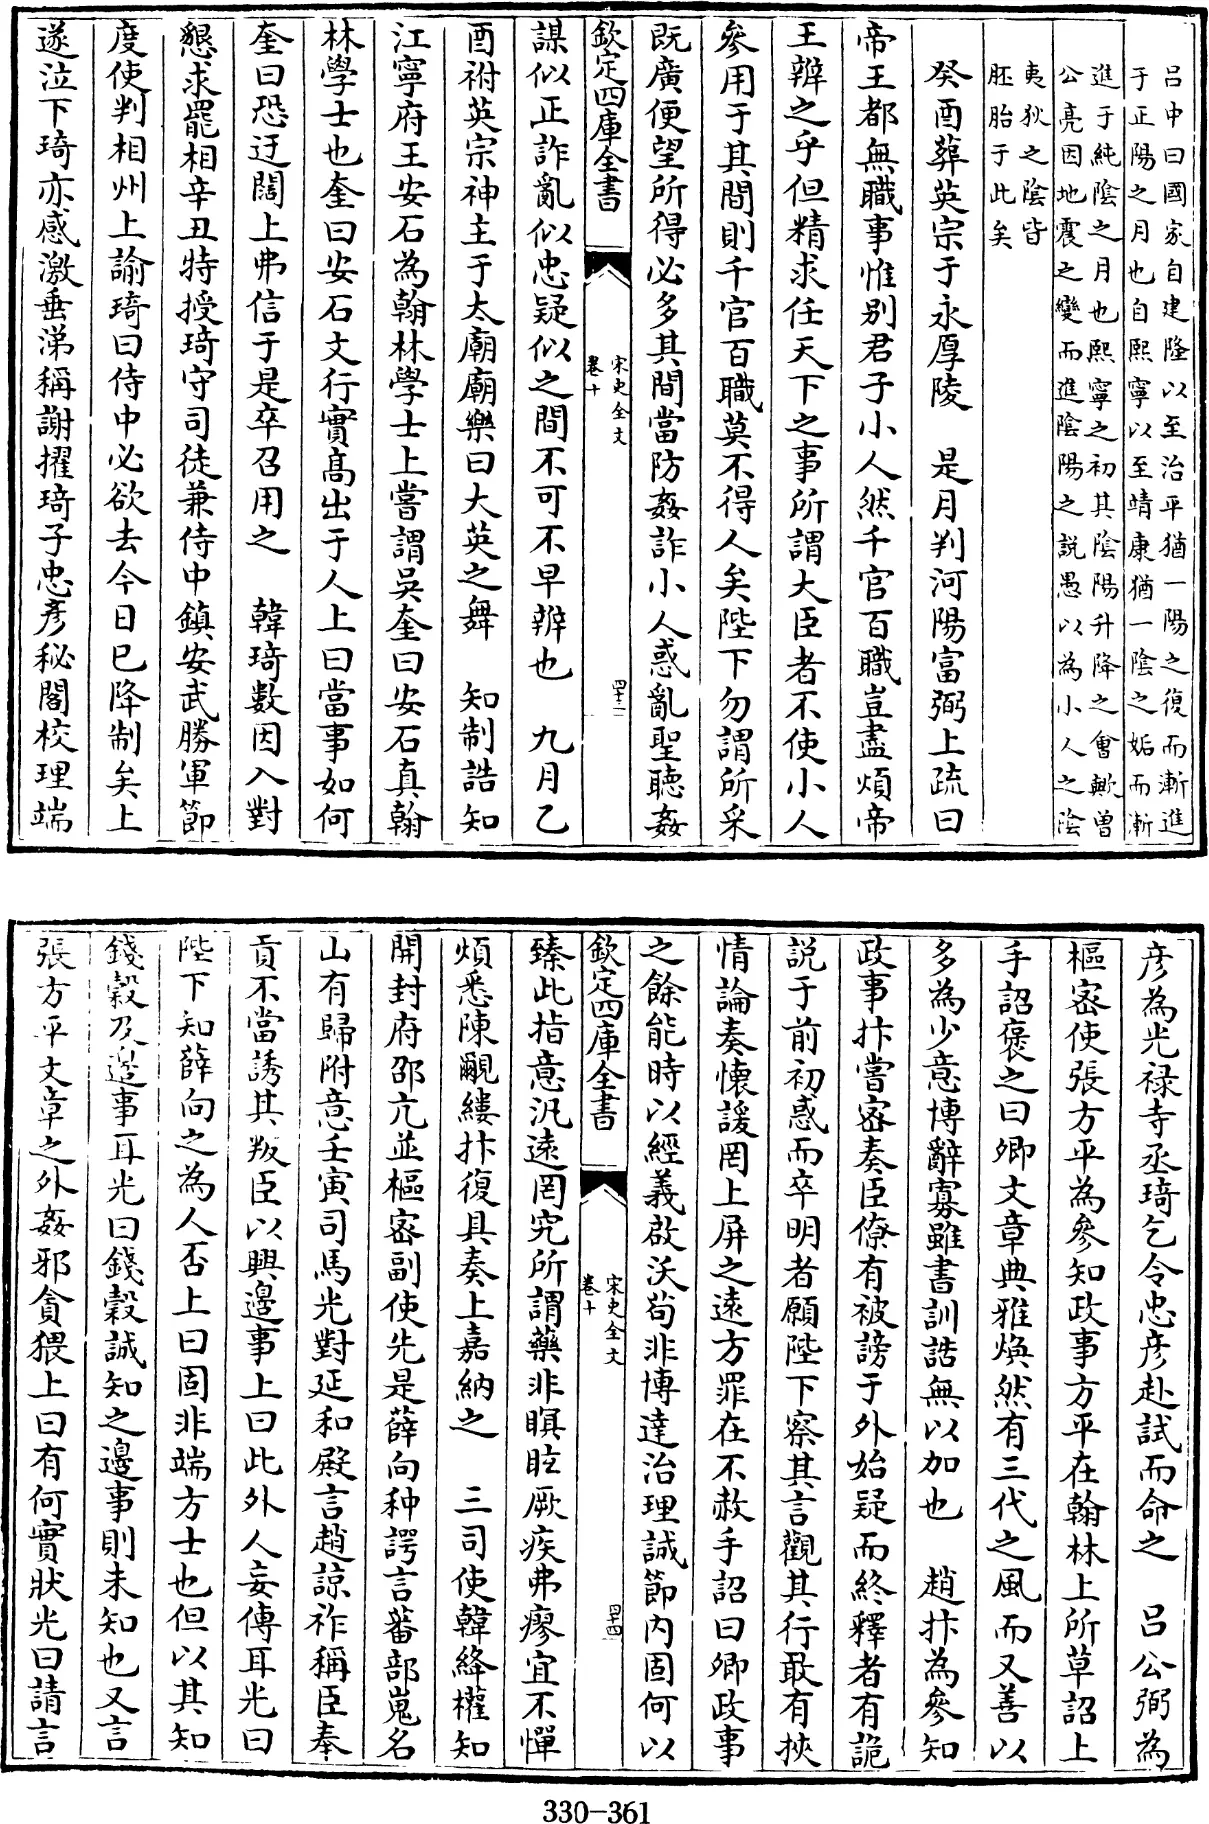 呂中曰國家自建隆以至治平猶一陽之復而漸進
于正陽之月也自熙寧以至靖康猶一陰之姤而漸
進于純陰之月也熙寧之初其陰陽升降之會歟曾
公亮因地震之變而進陰陽之説愚以為小人之陰
夷狄之陰皆
胚胎于此矣
癸酉葬英宗于永厚陵　是月判河陽富弼上疏曰
帝王都無職事惟别君子小人然千官百職豈盡煩帝
王辨之乎但精求任天下之事所謂大臣者不使小人
參用于其間則千官百職莫不得人矣陛下勿謂所采
既廣便望所得必多其間當防姦詐小人惑亂聖聽姦
欽定四庫全書
宋史全文
卷十
四十三
謀似正詐亂似忠疑似之間不可不早辨也　九月乙
酉祔英宗神主于太廟廟樂曰大英之舞　知制誥知
江寧府王安石為翰林學士上嘗謂吳奎曰安石真翰
林學士也奎曰安石文行實髙出于人上曰當事如何
奎曰恐迂闊上弗信于是卒召用之　韓琦數因入對
懇求罷相辛丑特授琦守司徒兼侍中鎮安武勝軍節
度使判相州上諭琦曰侍中必欲去今日已降制矣上
遂泣下琦亦感激垂涕稱謝擢琦子忠彦秘閣校理端
彦為光禄寺丞琦乞令忠彦赴試而命之　呂公弼為
樞密使張方平為參知政事方平在翰林上所草詔上
手詔襃之曰卿文章典雅煥然有三代之風而又善以
多為少意博辭寡雖書訓誥無以加也　趙抃為參知
政事抃嘗密奏臣僚有被謗于外始疑而終釋者有詭
説于前初惑而卒明者願陛下察其言觀其行敢有挾
情論奏懷諼罔上屏之遠方罪在不赦手詔曰卿政事
之餘能時以經義啟沃苟非博達治理誠節内固何以
欽定四庫全書
宋史全文
卷十
四十四
臻此指意汎遠罔究所謂藥非瞑眩厥疾弗瘳宜不憚
煩悉陳覼縷抃復具奏上嘉納之　三司使韓絳權知
開封府邵亢並樞密副使先是薛向种諤言蕃部嵬名
山有歸附意壬寅司馬光對延和殿言趙諒祚稱臣奉
貢不當誘其叛臣以興邊事上曰此外人妄傳耳光曰
陛下知薛向之為人否上曰固非端方士也但以其知
錢穀及邊事耳光曰錢穀誠知之邊事則未知也又言
張方平文章之外姦邪貪猥上曰有何實狀光曰請言
330-361